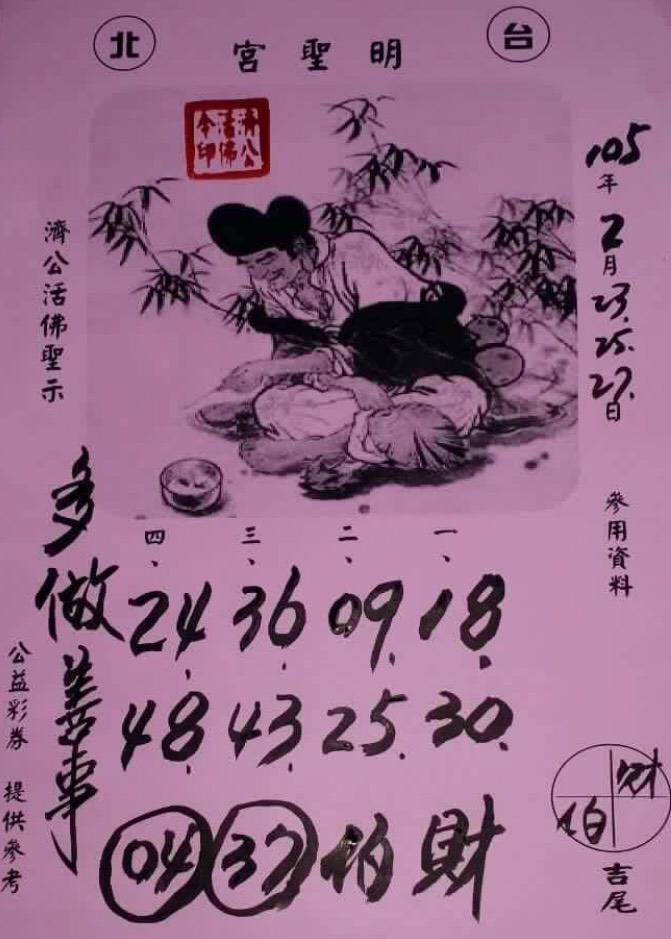 台北
明聖宮
濟公活佛令印
105年2月23.25.27.日
參用資料
濟公活佛聖示
一、18.30.財
二、09.25.伯
三、36.43.37
四、24.48.04
多做善事
公益彩券 提供參考
財伯
吉尾